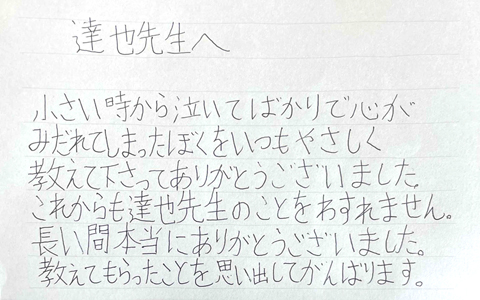 達也先生へ
小さい時から泣いてばかりで心が
みだれてしまったぼくをいつもやさしく
教えて下さってありがとうございました。
これからも達也先生のことをわすれません。
長い間本当にありがとうございました。
教えてもらったことを思い出してがんばります。